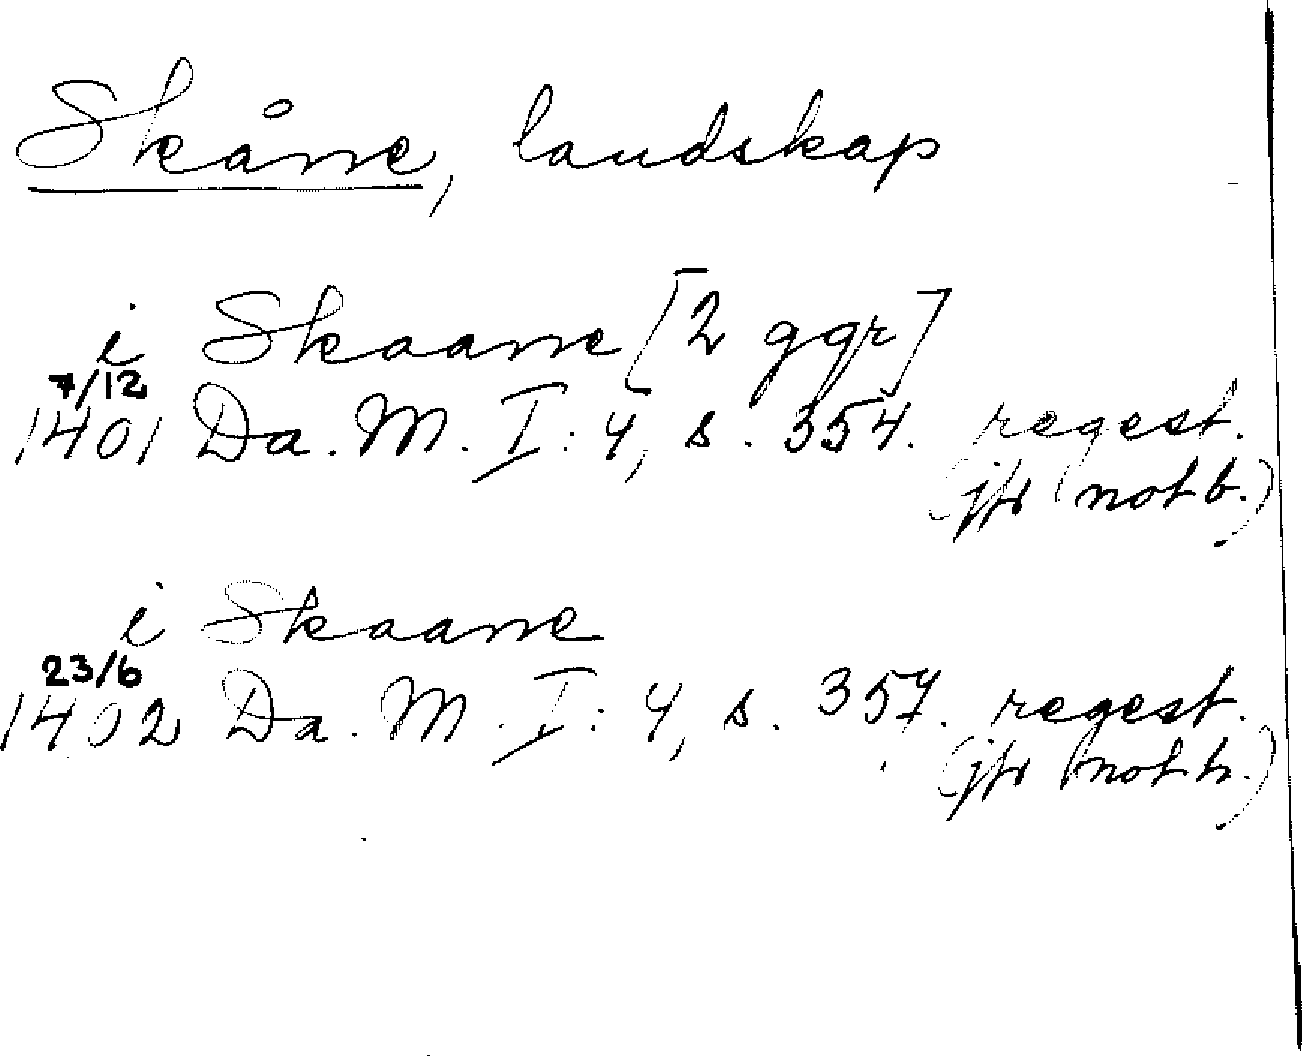 Skåne, landskap
i Skaane [2 ggr]
7/12
1401 Da. M. I: 4, s. 354. regest.
(jfr not b.)
i Skaane
23/6
1402 Da. M. I: 4, s. 357. regest.
(jfr not b.)